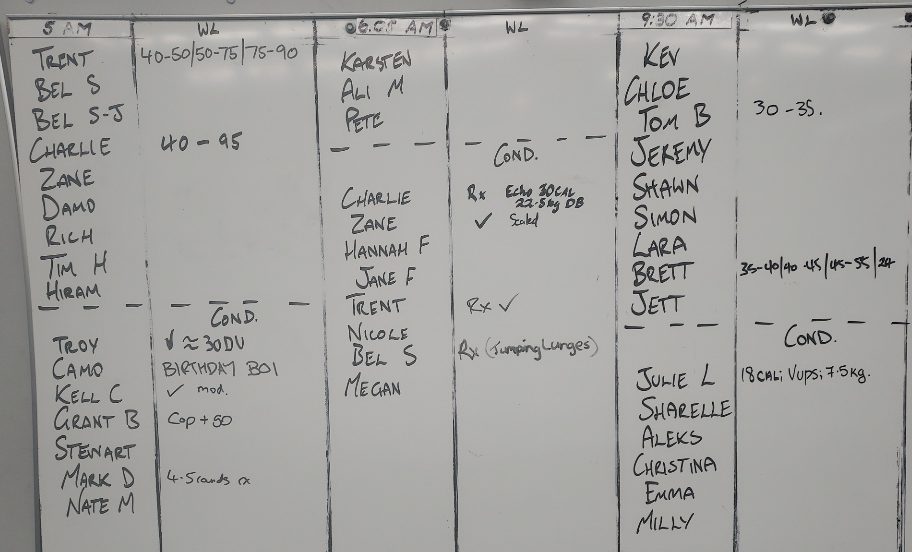 5 AM WL
TRENT 40-50/50-75/75-90
BEL S
BEL S-J
CHARLIE 40-95
ZANE
DAMO
RICH
TIM H
HIRAM
COND.
TROY ✓ ≈30DU
CAMO BIRTHDAY BOI
KELL C ✓ mod.
GRANT B Cap + 50
STEWART
MARK D 4.5rounds rx
NATE M
AM WL
KARSTEN
ALI M
PETE
COND.
CHARLIE Rx Echo 30CAL
22.5kg DB
ZANE ✓ Scaled
HANNAH F
JANE F
TRENT Rx ✓
NICOLE
BEL S Rx (Jumping Lunges)
MEGAN
9:30 AM WL
KEV
CHLOE
TOM B 30-35.
JEREMY
SHAWN
SIMON
LARA
BRETT 35-40/40-45/45-55/
JETT
COND.
JULIE L 18CAL; Vups; 7.5kg.
SHARELLE
ALEKS
CHRISTINA
EMMA
MILLY